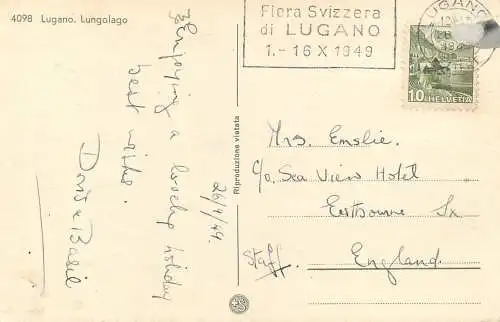 4098 Lugano. Lungolago
Fiera Svizzera
di LUGANO
1.-16 X 1949
LUGANO
10 HELVETIA
Enjoying a lovely holiday
best wishes.
Doris & Basil
26/9/49.
Riproduzione vietata
Mrs. Emslie.
c/o. Sea View Hotel
Eastbourne Sx
Staff.
England.